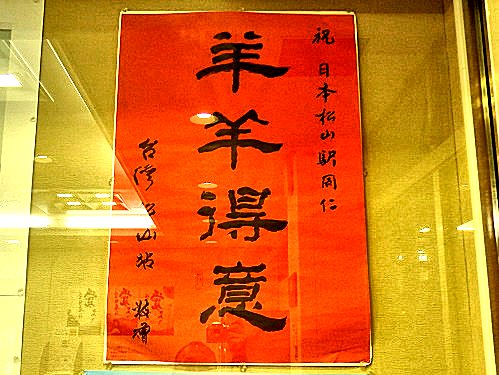 祝 日本松山駅同仁
羊羊得意
台灣 松山站 敬贈